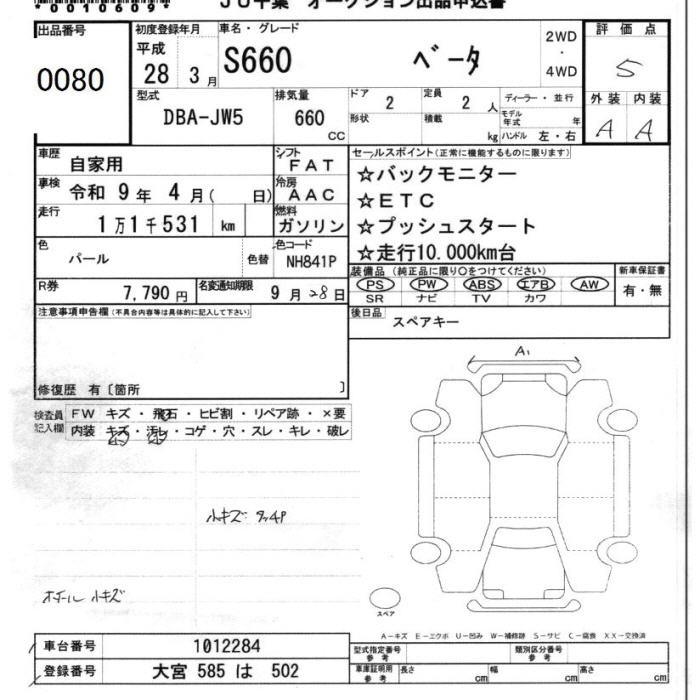 *0010609*
JU千葉 オークション出品申込書
出品番号
0080
初度登録年月
平成
28 3 月
車名・グレード
S660 ベータ
2WD
・
4WD
評価点
5
外装 内装
A A
型式
DBA-JW5
排気量
660
CC
ドア
2
定員
2 人
形状
積載
kg
ディーラー・並行
モデル年式 年
ハンドル 左・右
車歴
自家用
車検
令和 9 年 4 月( 日)
走行
1万1千531 km
シフト
FAT
冷房
AAC
燃料
ガソリン
色
パール
色替
色コード
NH841P
R券
7,790 円
名変通知期限
9 月 28 日
セールスポイント(正常に機能するものに限ります)
☆バックモニター
☆ETC
☆プッシュスタート
☆走行10.000km台
装備品(純正品に限り○をつけてください)
PS PW ABS エアB AW
SR ナビ TV カワ
新車保証書
有・無
後日品
スペアキー
注意事項申告欄(不具合内容等は具体的に記入して下さい)
修復歴 有〔箇所 〕
検査員記入欄
FW キズ・飛石・ヒビ割・リペア跡・×要
内装 キズ・汚レ・コゲ・穴・スレ・キレ・破レ
小キズ
小キズ
A1
スペア
A-キズ E-エクボ U-凹み W-補修跡 S-サビ C-腐食 XX-交換済
車台番号
1012284
登録番号
大宮 585 は 502
型式指定番号
参考
類別区分番号
参考
車庫証明用
参考
長さ cm
幅 cm
高さ cm